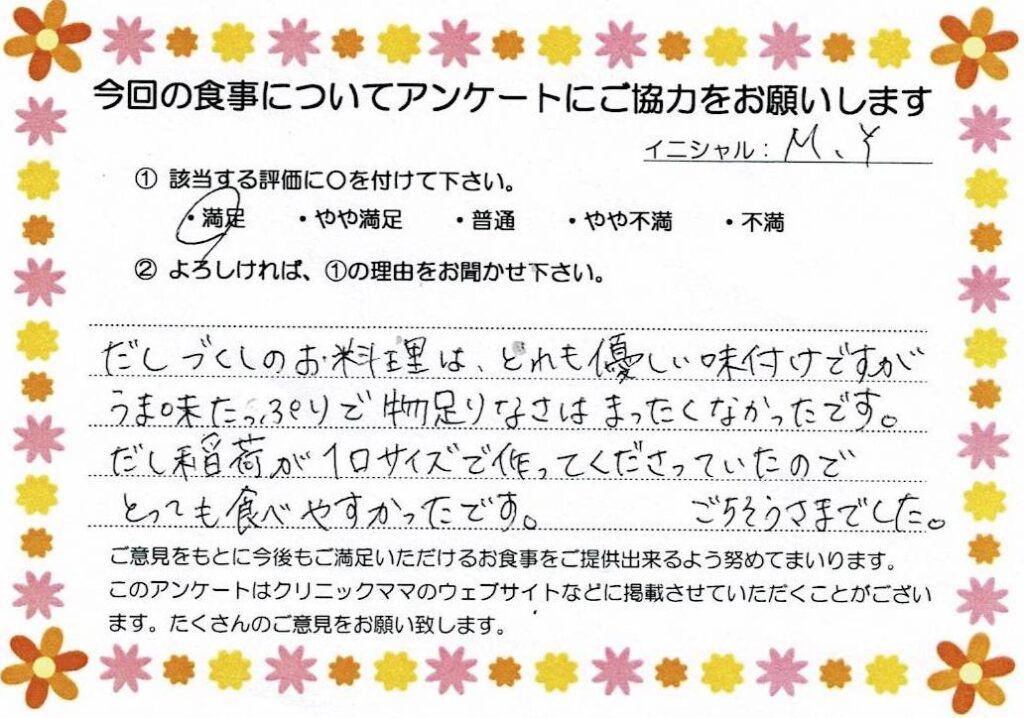 今回の食事についてアンケートにご協力をお願いします
イニシャル： M、Y
① 該当する評価に〇を付けて下さい。
・満足 ・やや満足 ・普通 ・やや不満 ・不満
② よろしければ、①の理由をお聞かせ下さい。
だしづくしのお料理は、どれも優しい味付けですが
うま味たっぷりで物足りなさはまったくなかったです。
だし稲荷が1口サイズで作ってくださっていたので
とっても食べやすかったです。 ごちそうさまでした。
ご意見をもとに今後もご満足いただけるお食事をご提供出来るよう努めてまいります。
このアンケートはクリニックママのウェブサイトなどに掲載させていただくことがござい
ます。たくさんのご意見をお願い致します。